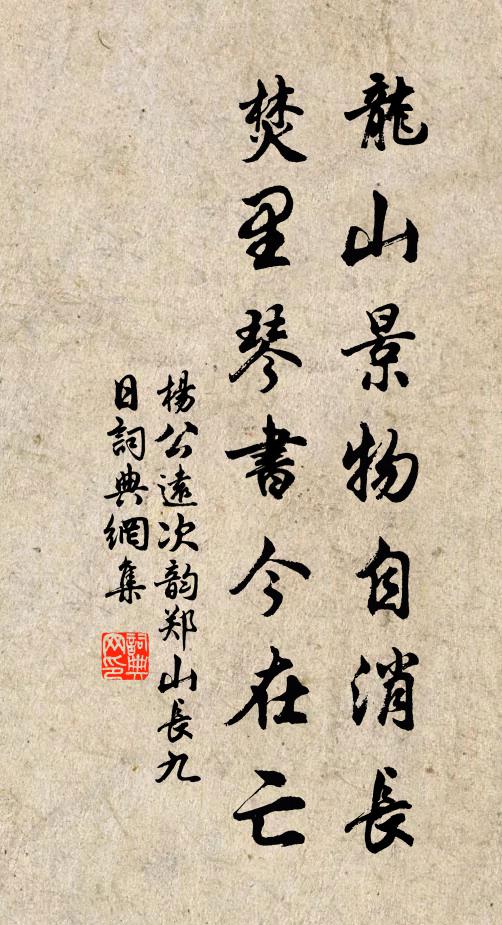 龍山景物自消長
焚里琴書今在亡
楊公遠次韵郑山長九
日詞典網集
詞典網印